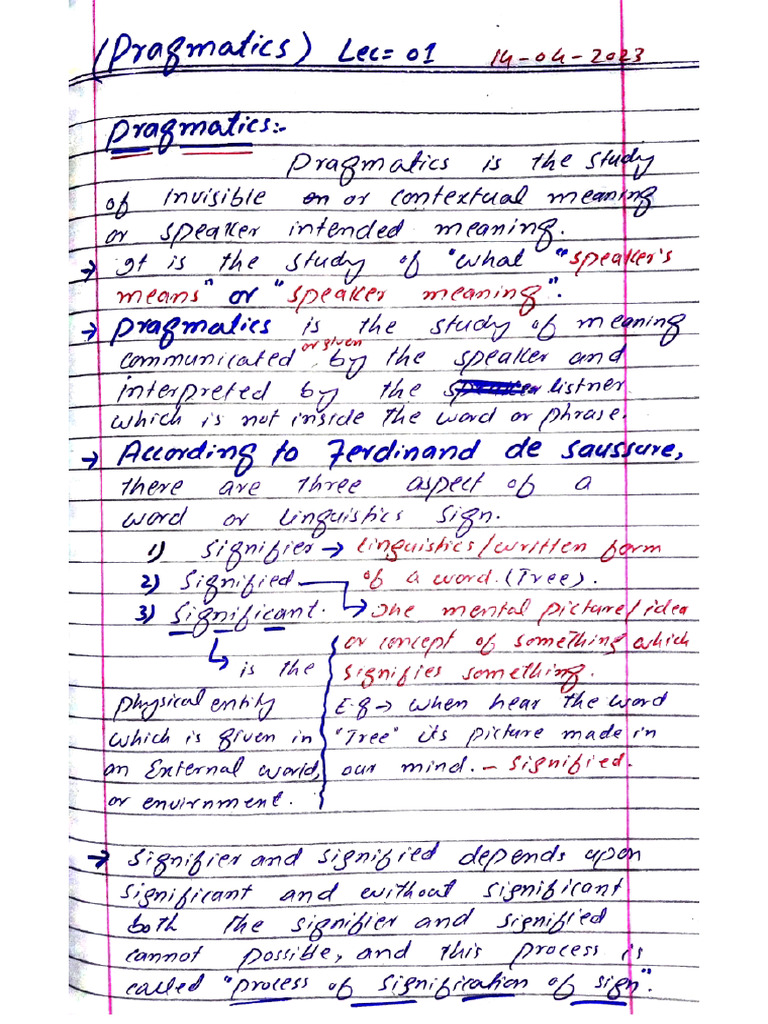 (Pragmatics) Lec= 01 14-04-2023
Pragmatics:-
Pragmatics is the study
of invisible or contextual meaning
or speaker intended meaning.
→ It is the study of "what "speaker's
means" or "speaker meaning".
→ Pragmatics is the study of meaning
communicated or given by the speaker and
interpreted by the listner
which is not inside the word or phrase.
→ According to Ferdinand de Saussure,
there are three aspect of a
word or linguistics sign.
1) Signifier → linguistics/written form
2) Signified of a word. (Tree).
3) Significant. → The mental picture/idea
or concept of something which
→ is the signifies something.
physical entity E.g → when hear the word
which is given in "Tree" its picture made in
an External world, our mind. - Signified.
or envirnment.
→ Signifier and signified depends upon
significant and without significant
both the signifier and signified
cannot possible, and this process is
called "process of signification of sign".